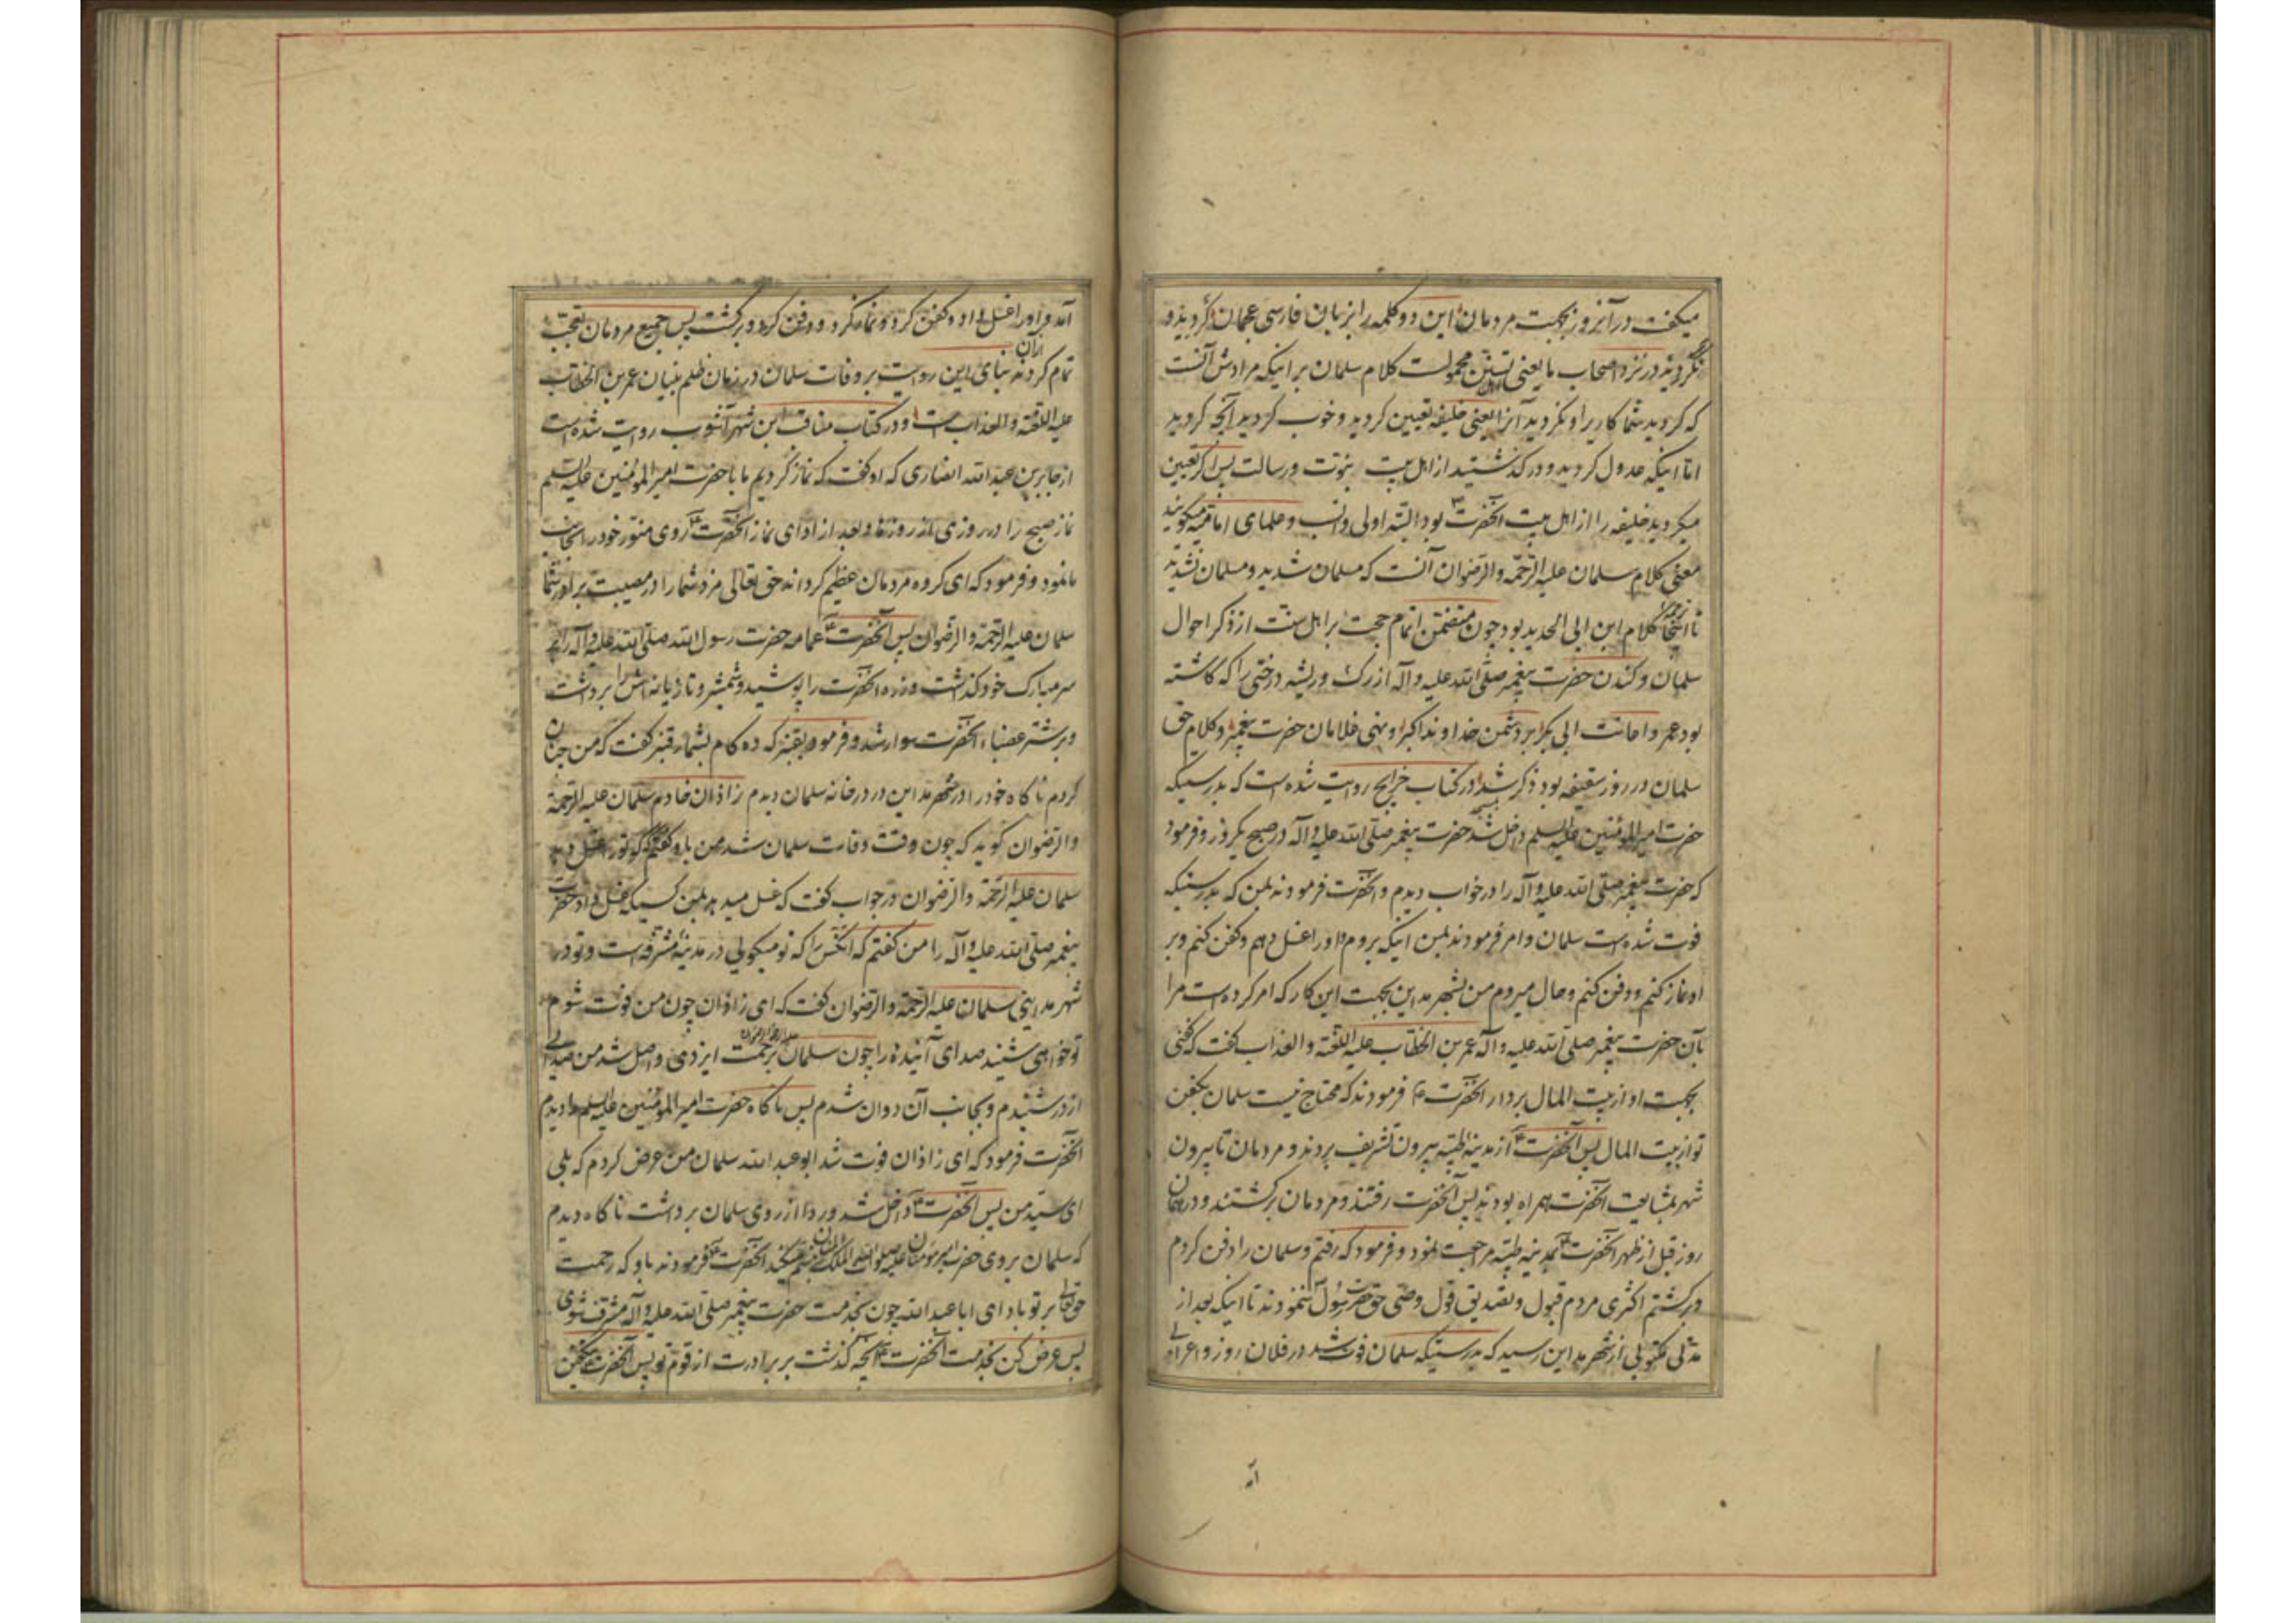 میکفت در آنروز بجهت مردمان این دو کلمه را بزبان فارسی عجمان کردیدو
نکردید و در نزد اصحاب ما یعنی تسنن محمولست کلام سلمان بر اینکه مرادش آنست
که کردید شما کاریرا و نکردید آنرا یعنی خلیفه تعیین کردید و خوب کردید آنچه کردید
امّا اینکه عدول کردید و در کذشتید از اهل بیت نبوّت و رسالت پس اکر تعیین
میکردید خلیفه را از اهل بیت آنحضرت بود البتّه اولی و انسب و علمای امامیّه میکویند
معنی کلام سلمان علیه الرّحمّه والرّضوان آنست که مسلمان شدید و مسلمان نشدید
تا اینجا ترجمه کلام ابن ابی الحدید بود چون متضمّن اتمام حجت بر اهل سنّت از ذکر احوال
سلمان و کندن حضرت پیغمبر صلّی الله علیه و آله از رک و ریشه درختی را که کاشته
بود عمر و اهانت ابی بکر بر دشمن خداوند اکبر و نهی غلامان حضرت پیغمبر و کلام حق
سلمان در روز سقیفه بود ذکر شد در کتاب خرایج روایت شده است که بدرستیکه
حضرت امیرالمؤمنین علیه السلم داخل شد بمسجد حضرت پیغمبر صلّی الله علیه و آله در صبح یکروز و فرمود
که حضرت پیغمبر صلّی الله علیه و آله را در خواب دیدم و آنحضرت فرمودند بمن که بدرستیکه
فوت شده است سلمان و امر فرمودند بمن اینکه بروم و او را غسل دهم و کفن کنم و بر
او نماز کنم و دفن کنم و حال میروم من بشهر مداین بجهت این کار که امر کرده است مرا
بآن حضرت پیغمبر صلّی الله علیه و آله عمر بن الخطّاب علیه اللّعنة والعذاب کفت که کفنی
بجهت او از بیت المال بردار آنحضرت ع فرمودند که محتاج نیست سلمان بکفن
تو از بیت المال پس آنحضرت از مدینهٔ طیّبه بیرون تشریف بردند و مردمان تا بیرون
شهر بمشایعت آنحضرت همراه بودند پس آنحضرت رفتند و مردمان برکشتند و در همان
روز قبل از ظهر آنحضرت بمدینه طیّبه مراجعت نمود و فرمود که رفتم و سلمان را دفن کردم
و برکشتم اکثری مردم قبول و تصدیق قول وصّی حق حضرت رسول ننمودند تا اینکه بعد از
مدتی مکتوبی از شهر مداین رسید که بدرستیکه سلمان فوت شد در فلان روز و اعرابی
آمد
آمد و او را غسل داد و کفن کرد و نماز کرد و دفن کرد و برکشت پس جمیع مردمان تعجّب
تمام کردند از آن بنای این روایت بر وفات سلمان در زمان ظلم بنیان عمر بن الخطّاب
علیه اللعنة والعذاب است و در کتاب مناقب ابن شهر آشوب روایت شده است
از جابر بن عبد الله انصاری که او کفت که نماز کردیم ما با حضرت امیرالمؤمنین علیه السلم
نماز صبح را در روزی از روزها و بعد از ادای نماز آنحضرت روی منوّر خود را بجانب
ما نمود و فرمود که ای کروه مردمان عظیم کرداند حق تعالی مزد شما را در مصیبت برادر شما
سلمان علیه الرّحمة والرضوان پس آنحضرت عمامه حضرت رسول الله صلّی الله علیه و آله را بر
سر مبارک خود کذاشت و زره آنحضرت را پوشید و شمشیر و تازیانه اش را برداشت
و بر شتر عضباء آنحضرت سوار شد و فرمود بقنبر که ده کام بشمار قنبر کفت که من چنان
کردم ناکاه خود را در شهر مداین در در خانه سلمان دیدم زاذان خادم سلمان علیه الرّحمة
والرّضوان کوید که چون وقت وفات سلمان شد من باو کفتم که کی تو را غسل دهد
سلمان علیه الرّحمّة والرّضوان در جواب کفت که غسل میدهد بمن کسیکه غسل داد حضرت
پیغمبر صلّی الله علیه و آله را من کفتم که آنکس را که تو میکویی در مدینهٔ مشرّفه است و تو در
شهر مداینی سلمان علیه الرّحمة والرّضوان کفت که ای زاذان چون من فوت شوم
تو خواهی شنید صدای آینده را چون سلمان علیه الرحمة والرضوان برحمت ایزدی واصل شد من صدایی
از در شنیدم و بجانب آن روان شدم پس ناکاه حضرت امیرالمؤمنین علیه السلم را دیدم
آنحضرت فرمود که ای زاذان فوت شد ابو عبد الله سلمان من عرض کردم که بلی
ای سیّد من پس آنحضرت داخل شد و ردا از روی سلمان برداشت ناکاه دیدم
که سلمان بروی حضرت امیر مؤمنان علیه صلوات الله الملک المنّان تبسّم میکند آنحضرت فرمودند باو که رحمت
حق تعالی بر تو باد ای ابا عبد الله چون بخدمت حضرت پیغمبر صلّی الله علیه و آله مشرّف شوی
پس عرض کن بخدمت آنحضرت آنچه کذشت بر برادرت از قوم تو پس آنحضرت تکفین